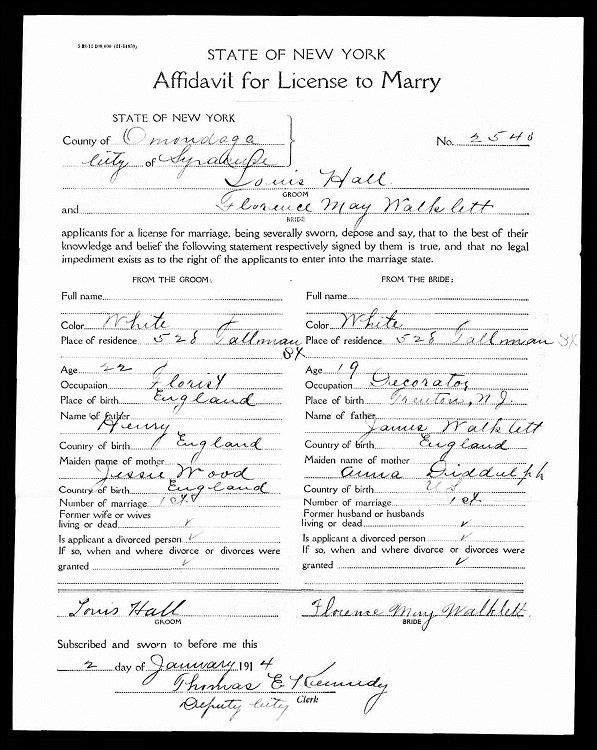 STATE OF NEW YORK
Affidavit for License to Marry
STATE OF NEW YORK
County of Onondaga
City of Syracuse
No. 2540
Louis Hall
GROOM
and Florence May Walklett
BRIDE
applicants for a license for marriage, being severally sworn, depose and say, that to the best of their
knowledge and belief the following statement respectively signed by them is true, and that no legal
impediment exists as to the right of the applicants to enter into the marriage state.
FROM THE GROOM:
Full name
Color White
Place of residence 528 Tallman
St
Age 22
Occupation Florist
Place of birth England
Name of father
Henry
Country of birth England
Maiden name of mother
Jessie Wood
Country of birth England
Number of marriage 1st
Former wife or wives
living or dead
Is applicant a divorced person
If so, when and where divorce or divorces were
granted
Louis Hall
GROOM
FROM THE BRIDE:
Full name
Color White
Place of residence 528 Tallman St
Age 19
Occupation Decorator
Place of birth Trenton, N J.
Name of father
James Walklett
Country of birth England
Maiden name of mother
Anna Biddulph
Country of birth US
Number of marriage 1st
Former husband or husbands
living or dead
Is applicant a divorced person
If so, when and where divorce or divorces were
granted
Florence May Walklett.
BRIDE
Subscribed and sworn to before me this
2 day of January 1914
Thomas E Kennedy
Deputy City Clerk